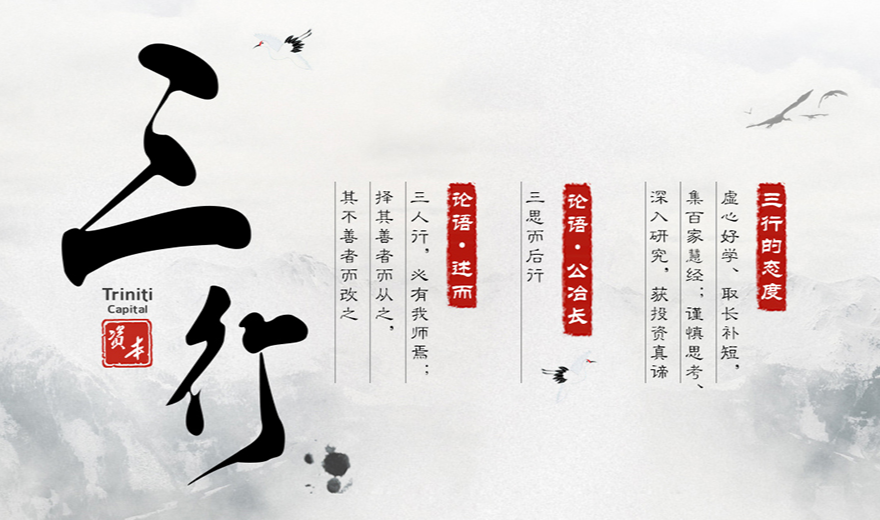 三行
Triniti
Capital
资本
三行的态度
虚心好学、取长补短,
集百家慧经;谨慎思考、
深入研究,获投资真谛
论语·公冶长
三思而后行
论语·述而
三人行,必有我师焉;
择其善者而从之,
其不善者而改之